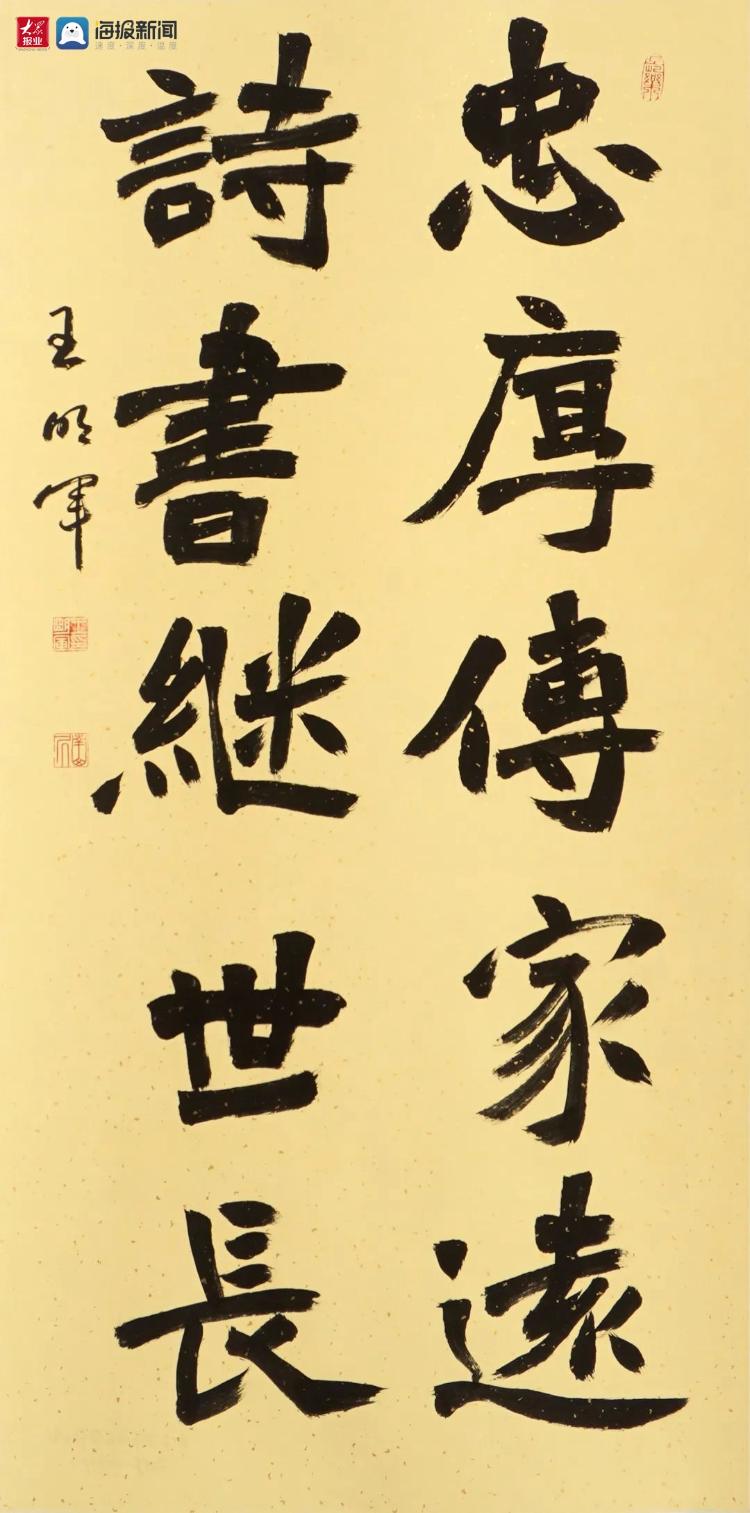 大众报业
海报新闻
速度·深度·温度
忠厚傳家遠
詩書继世長
王明军